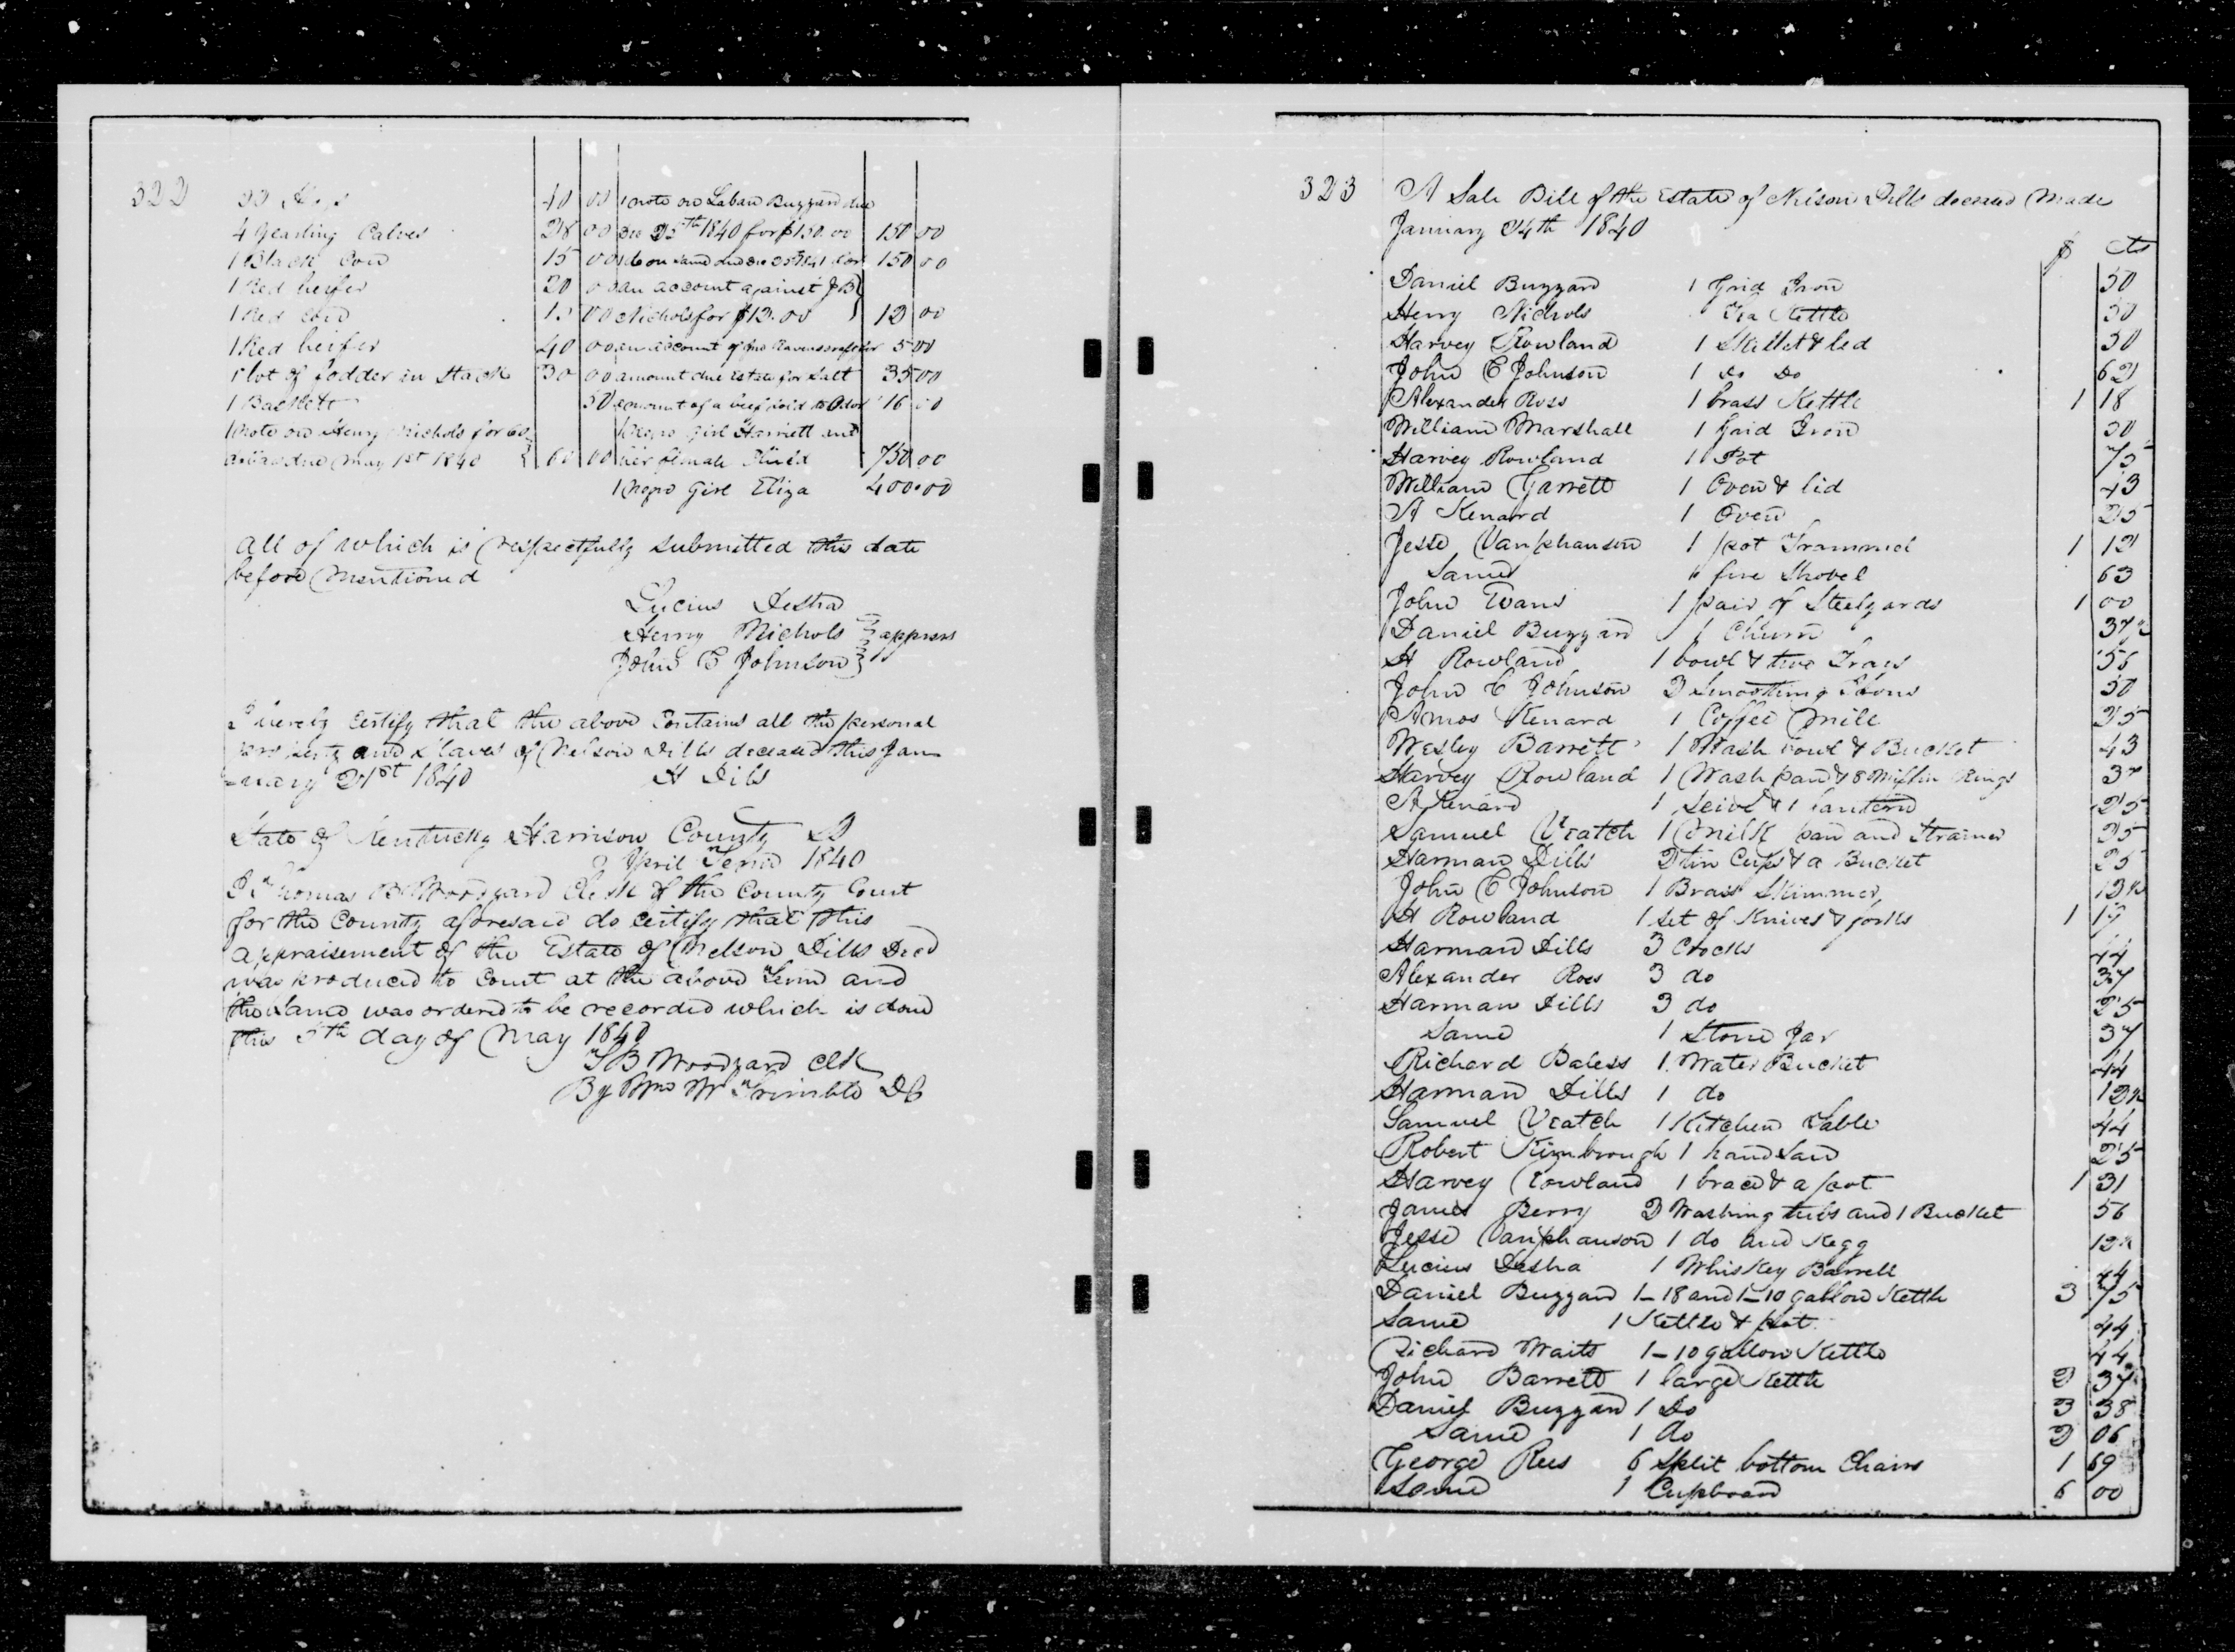 322
22 Hogs 40 00
4 Yearling Calves 28 00
1 Black Cow 15 00
1 Red heifer 20 00
1 Red Cow 15 00
1 Red heifer 40 00
1 lot of fodder in Stack 30 00
1 Baskett 50
1 note on Henry Nichols for 60
dollars due May 1st 1840 } 60 00
1 note on Laban Buzzard due
Dec 25th 1840 for $150.00 150 00
1 do on same due Dec 25th 1841 for 150 00
an account against J B
Nichols for $12.00 } 12 00
an account of Jno 5 00
amount due Estate for Salt 35 00
amount of a beef sold to 16 00
1 Negro Girl Harriett and
her female Child 750 00
1 Negro Girl Eliza 400.00
all of which is respectfully submitted this date
before Mentioned
Lucius Desha
Henry Nichols } apprsrs
John C Johnson }
I hereby Certify that the above Contains all the personal
property and slaves of Nelson Dills deceased this Jan
=uary 21st 1840 H Dils
State of Kentucky Harrison County Sct
April Term 1840
I Thomas B Woodyard Clerk of the County Court
for the County aforesaid do certify that this
appraisement of the Estate of Nelson Dills Decd
was produced to Court at the above Term and
the same was ordered to be recorded which is done
this 5th day of May 1840
T B Woodyard Clk
By Wm W Trimble DC
323
A Sale Bill of the Estate of Nelson Dills deceased Made
January 24th 1840
$ cts
Daniel Buzzard 1 Grid Iron 50
Henry Nichols Tea Kettle 50
Harvey Rowland 1 Skillet & led 50
John C Johnson 1 Do Do 62
Alexander Ross 1 brass Kettle 1 18
William Marshall 1 Grid Iron 50
Harvey Rowland 1 Pot 75
William Garrett 1 Oven & lid 43
A Kenard 1 Oven 25
Jesse Vanphanson 1 pot Trammel 1 12
Same " fire Shovel 63
John Evans 1 pair of Steelyards 1 00
Daniel Buzzard 1 Churn 37½
H Rowland 1 bowl & two Trays 56
John C Johnson 2 Smoothing Irons 50
Amos Kenard 1 Coffee Mill 25
Wesley Barrett 1 Wash bowl & Bucket 43
Harvey Rowland 1 Wash pan & 8 Miffin Rings 37
A Kenard 1 Seive & 1 lantern 25
Samuel Veatch 1 milk pan and Strainer 25
Harman Dills 2 tin Cups & a Bucket 25
John C Johnson 1 Brass Skimmer 12½
H Rowland 1 Set of Knives & forks 1 17
Harman Dills 3 Crocks 44
Alexander Ross 3 do 37
Harman Dills 3 do 25
Same 1 Stone Jar 37
Richard Baless 1 Water Bucket 44
Harman Dills 1 do 12½
Samuel Veatch 1 Kitchen Table 44
Robert Kimbrough 1 hand Saw 25
Harvey Rowland 1 brace & a foot 1 31
James Berry 2 Washing tubs and 1 Bucket 56
Jesse Vanphanson 1 do and Kegg 12½
Lucius Desha 1 Whiskey Barrell 44
Daniel Buzzard 1–18 and 1–10 gallon Kettle 3 75
Same 1 Kettle & pot 44
Richard Waits 1–10 gallon Kettle 44
John Barrett 1 large Kettle 2 37
Daniel Buzzard 1 Do 3 38
Same 1 do 2 06
George Rees 6 Split bottom Chairs 1 69
Same 1 Cupboard 6 00